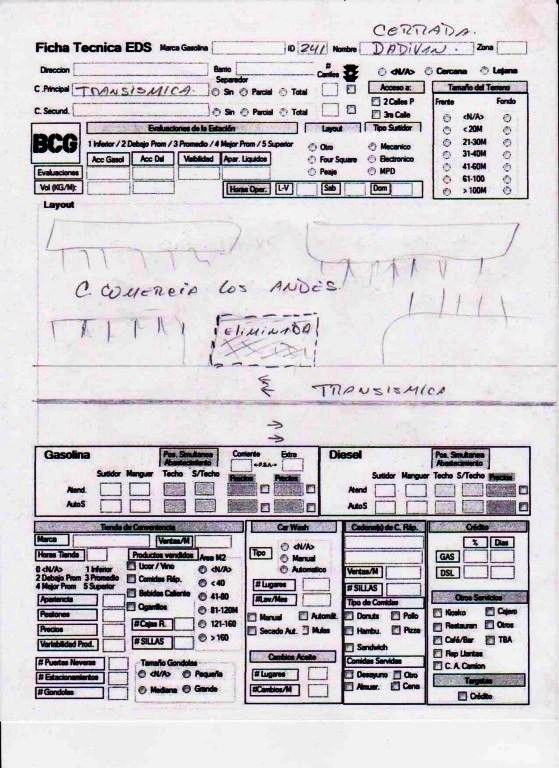 CERRADA.
Ficha Tecnica EDS Marca Gasolina ID 241 Nombre DADIVAN. Zona
Direccion Barrio # Carriles <N/A> Cercana Lejana
Separador
C .Principal TRANSISMICA. Sin Parcial Total Acceso a: Tamaño del Terreno
C. Secund. Sin Parcial Total 2 Calles P Frente Fondo
3ra Calle
<N/A>
<20M
21-30M
31-40M
41-60M
61-100
> 100M
BCG
Evaluaciones de la Estación Layout Tipo Sutidor
1 Inferior / 2 Debajo Prom / 3 Promedio / 4 Mejor Prom / 5 Superior
Acc Gasol Acc Dsl Viabilidad Apar. Liquidos
Otro Mecanico
Four Square Electronico
Peaje MPD
Evaluaciones
Vol (KG/M): Horas Oper. L-V Sab Dom
Layout
C. COMERCIA LOS ANDES.
ELIMINADA
TRANSISMICA
Gasolina Pos. Simultanea Abastecimiento Corriente Extra
Diesel Pos. Simultanea Abastecimiento
Sutidor Manguer Techo S/Techo Precios Precios
Sutidor Manguer Techo S/Techo Precios
Atend. Atend.
AutoS AutoS
Tienda de Conveniencia Car Wash Cadena(s) de C. Ráp. Crédito
Marca Ventas/M
Horas Tienda Productos vendidos Area M2
0 <N/A> 1 Inferior
2 Debajo Prom 3 Promedio
4 Mejor Prom 5 Superior
Licor / Vino
Comidas Ráp.
Bebidas Caliente
Cigarrillos
<N/A>
< 40
41-80
81-120M
121-160
> 160
Apariencia
Pasillones
Precios
Variabilidad Prod.
# Cajas R.
# SILLAS
# Puertas Neveras
# Estacionamientos
# Gondolas
Tamaño Gondolas
<N/A> Pequeña
Mediana Grande
Tipo <N/A>
Manual
Automatico
# Lugares
# Lav/Mes
Manual Automát.
Secado Aut. Mulas
Cambios Aceite
# Lugares
#Cambios/M
Ventas/M
# SILLAS
Tipo de Comidas
Donuts Pollo
Hambu. Pizza
Sandwich
Comidas Servidas
Desayuno Otro
Almuer. Cena
% Dias
GAS
DSL
Otros Servicios
Kiosko Cajero
Restauran Otros
Café/Bar TBA
Rep Llantas
C. A. Camion
Targetas
Crédito